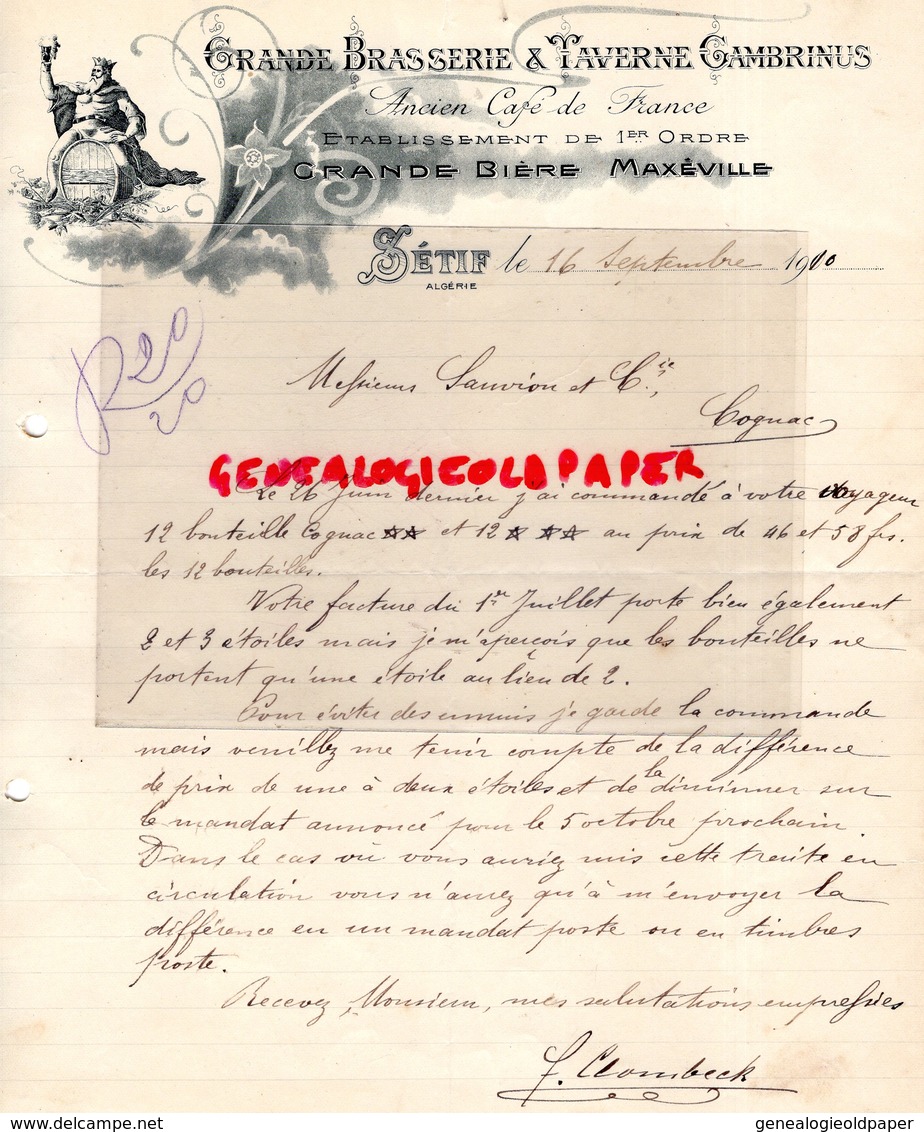 GRANDE BRASSERIE & TAVERNE GAMBRINUS
Ancien Café de France
ETABLISSEMENT DE 1ER ORDRE
GRANDE BIÈRE MAXÉVILLE
SÉTIF le 16 Septembre 1910
ALGÉRIE
R 20
20
Messieurs Sauvion et Cie,
Cognac
GENEALOGIEOLDPAPER
Le 26 Juin dernier j'ai commandé à votre voyageur
12 bouteille Cognac ☆☆ et 12 ☆ ☆☆ au prix de 46 et 58 frs.
les 12 bouteilles.
Votre facture du 1er Juillet porte bien également
2 et 3 étoiles mais je m'aperçois que les bouteilles ne
portent qu'une étoile au lieu de 2.
Pour éviter des ennuis je garde la commande
mais veuillez me tenir compte de la différence
de prix de une à deux étoiles et de la diminuer sur
le mandat annoncé pour le 5 octobre prochain.
Dans le cas où vous auriez mis cette traite en
circulation vous n'aurez qu'à m'envoyer la
différence en un mandat poste ou en timbres
poste.
Recevez, Monsieur, mes salutations empressées
F. Clombeck
delcampe.net
genealogieoldpaper